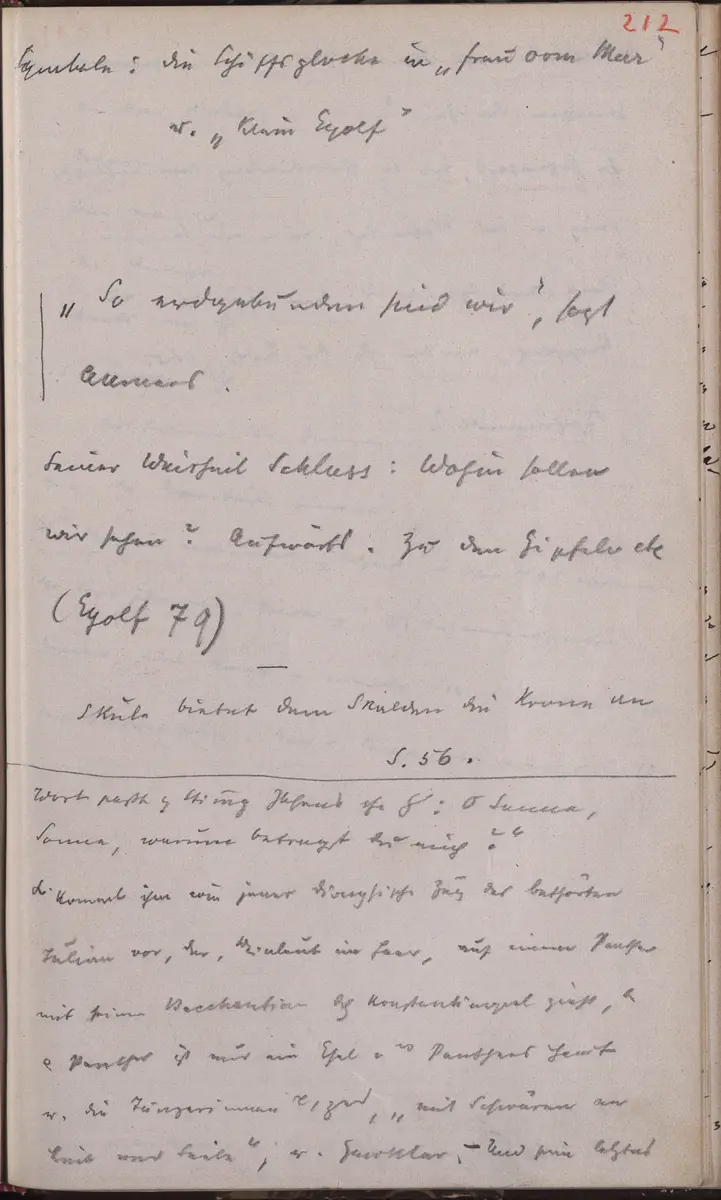 212
Symbole: die Schiffsglocke in „Frau vom Meer“
u. „Klein Eyolf“
„So erdgebunden sind wir“, sagt
Allmers.
Seiner Weisheit Schluss: Wohin sollen
wir sehen? Aufwärts. Zu den Gipfeln etc
(Eyolf 79)
Skule bietet dem Skalden die Krone an
S. 56.
Wort Ibsens: O Sonne,
Sonne, warum betrogst du mich?“
kommt ihm wie jener dionysische Zug des bethörten
Julian vor, der, Weinlaub im Haar, auf einem Panther
mit seinen Bacchanten Konstantinopel zieht,
Panther ist nur ein Esel Panthers Haut
u. die Tänzerinnen „mit Schwären an
Leib und Seele“, u. Gaukler, – Und sein letztes